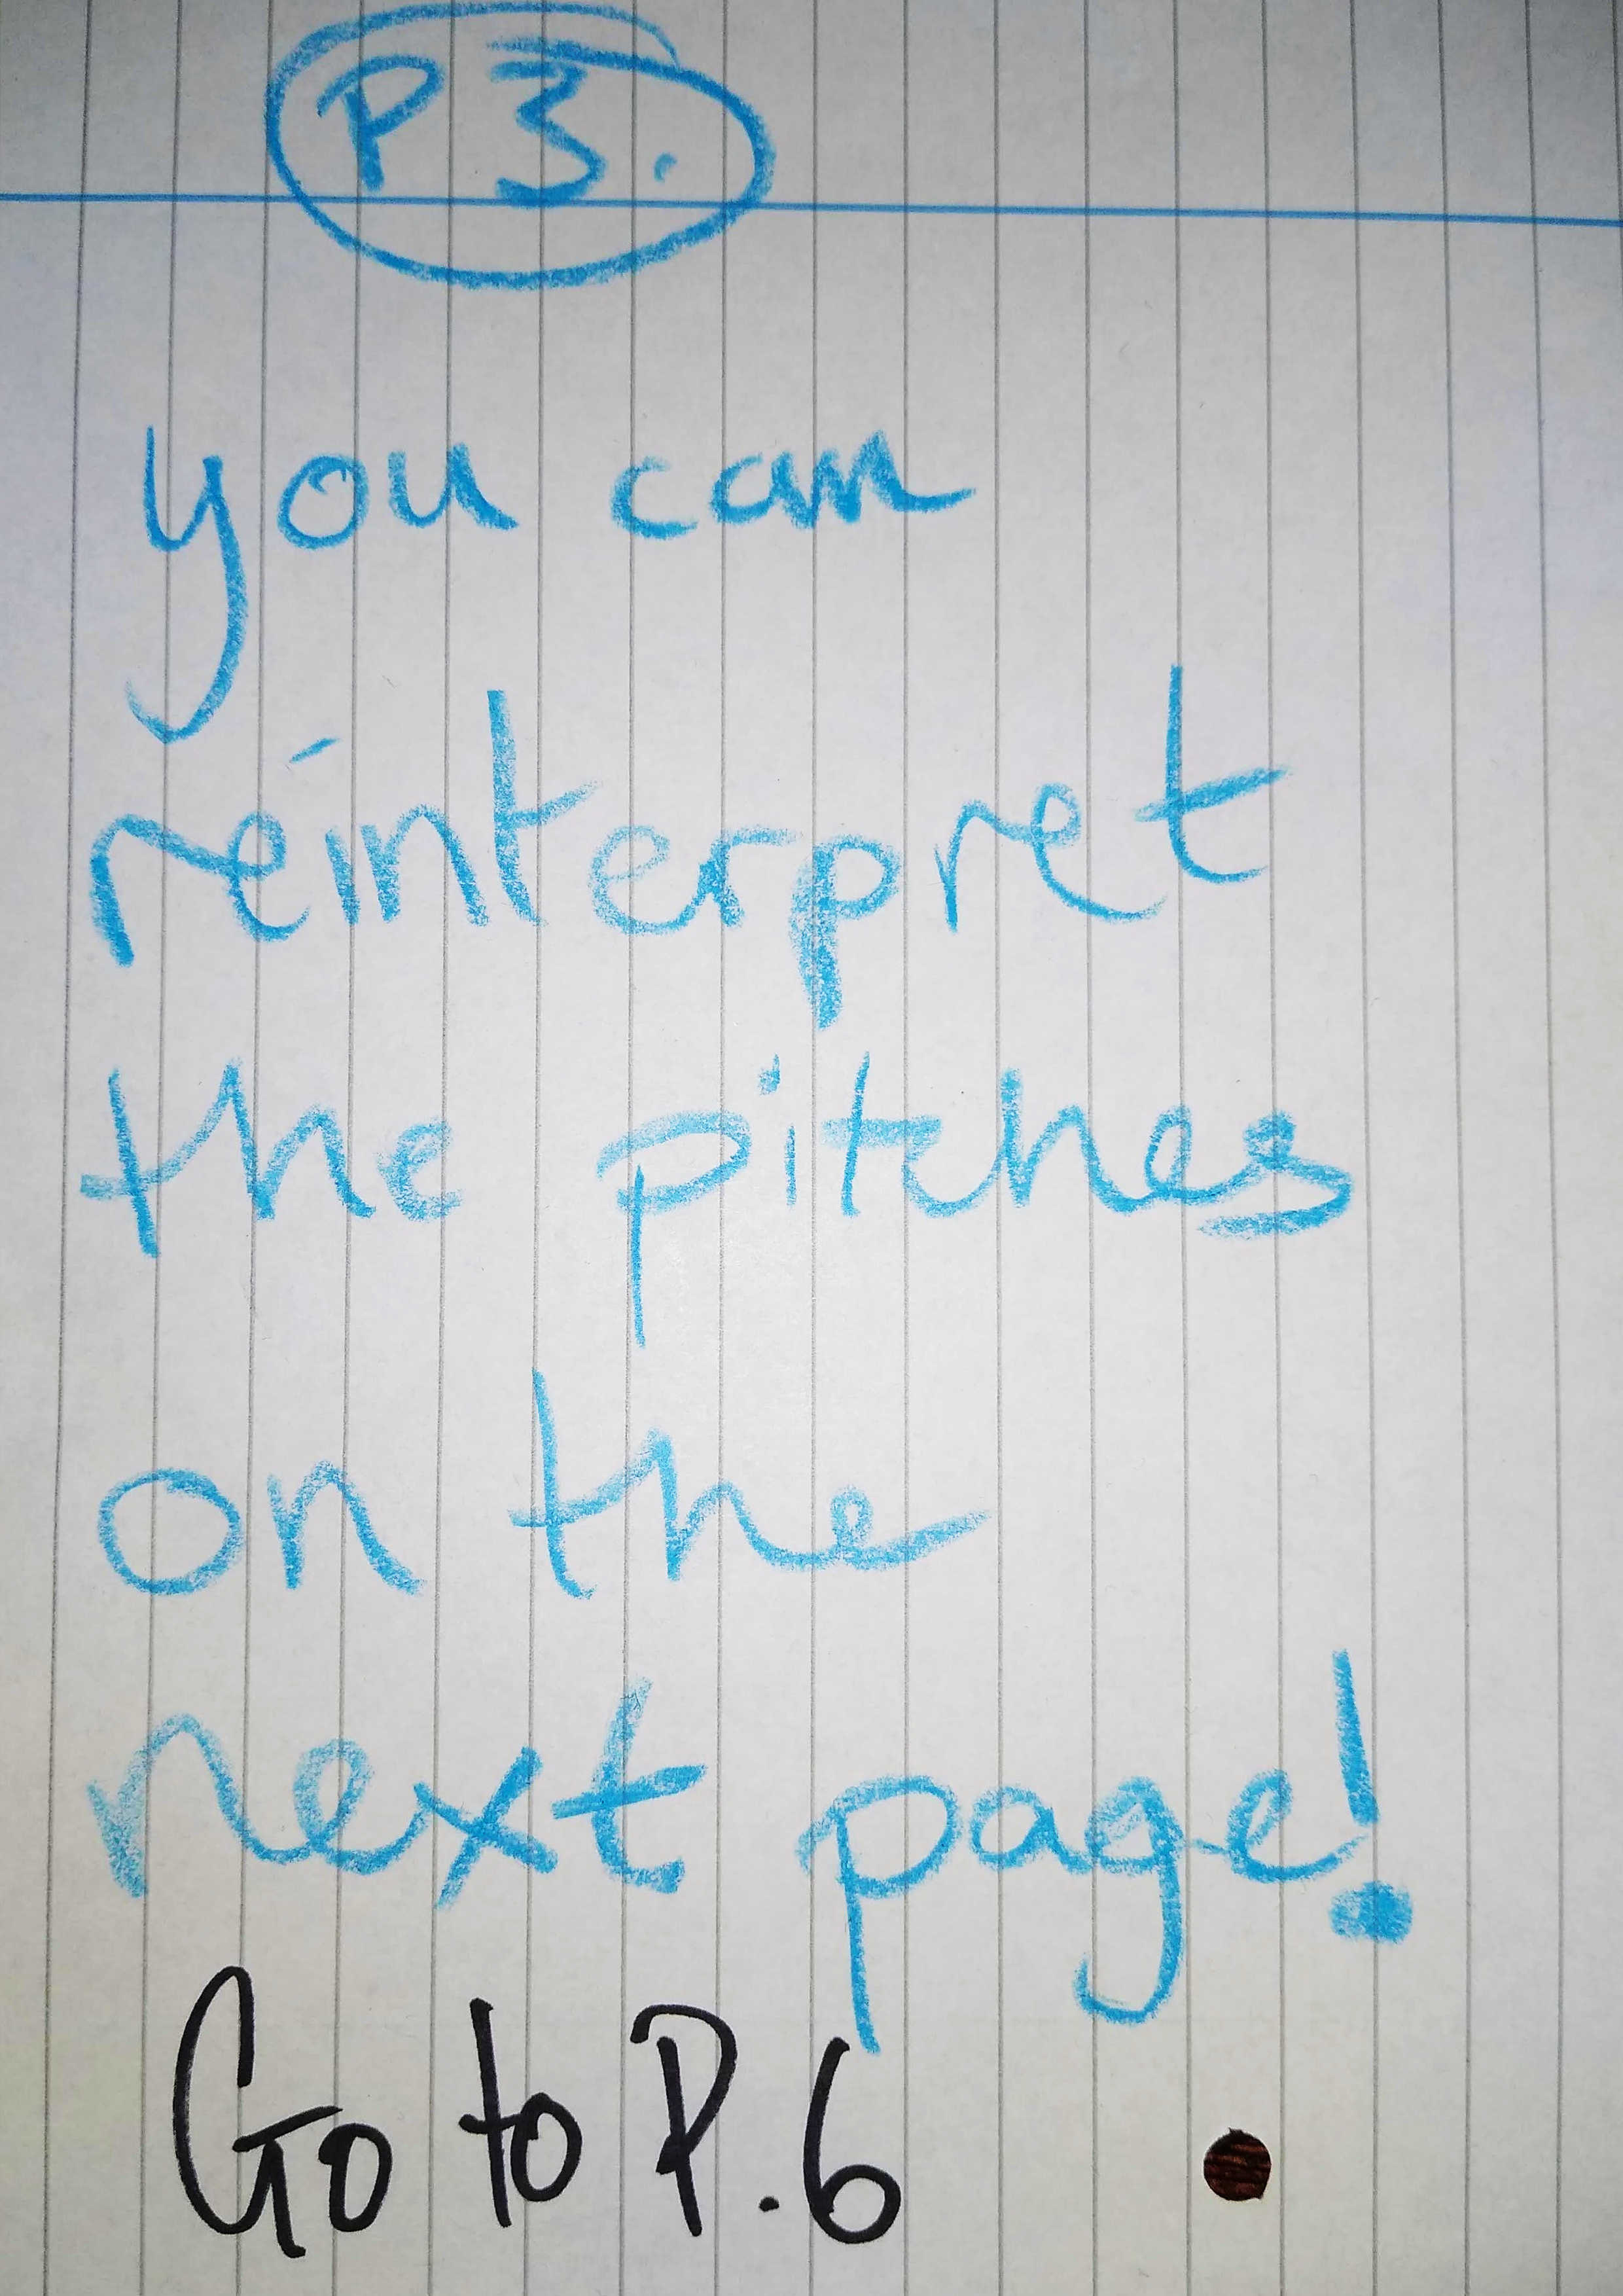 P 3.
you can
reinterpret
the pitches
on the
next page!
Go to P.6